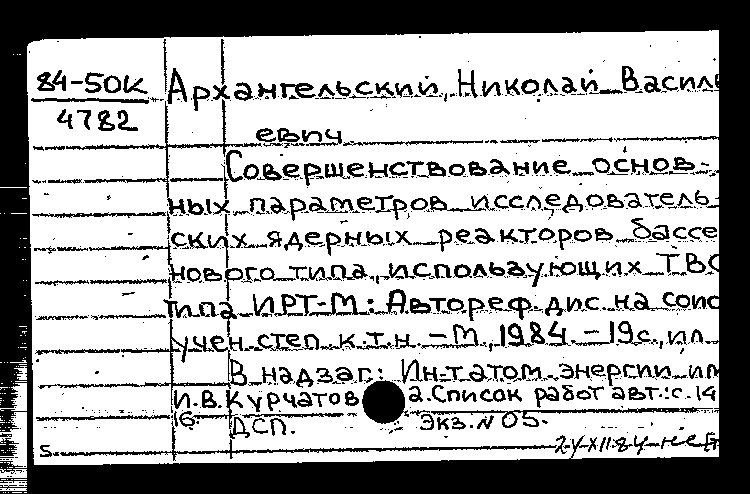 84-50К
4782
Архангельский, Николай Василь
евич
Совершенствование основ-
ных параметров исследователь-
ских ядерных реакторов бассе
нового типа, использующих ТВС
типа ИРТ-М: Автореф. дис. на соис
учен. степ. к.т.н. – М., 1984. – 19с., ил
В надзаг.: Ин-т атом. энергии им
И.В. Курчатов а. Список работ авт.: с. 14
16.
ДСП. Экз. N 05.
5.